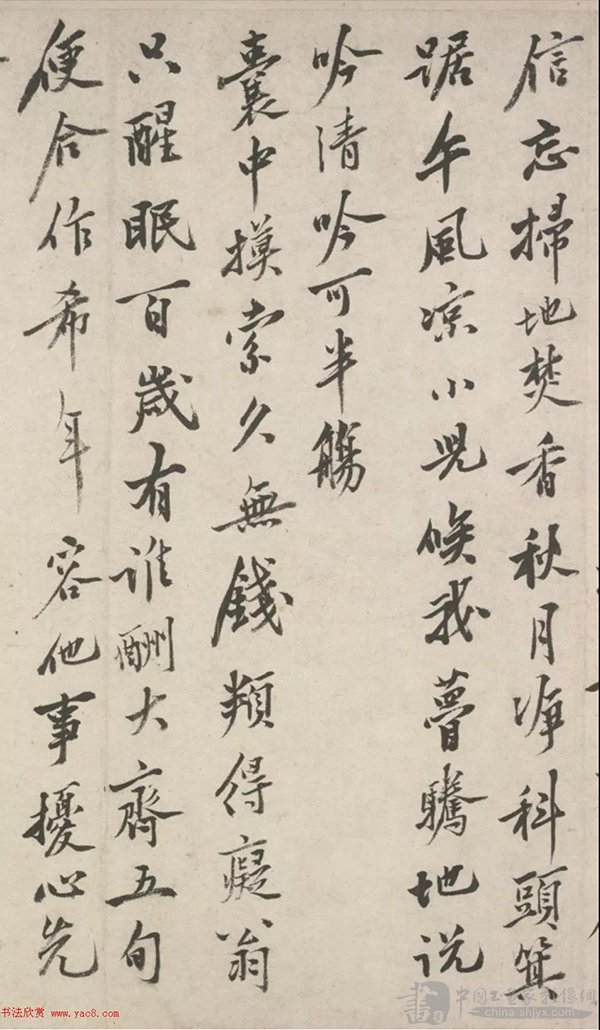 信忘掃地焚香秋月淨科頭箕
踞午風凉小児喚我瞢騰地説
吟清吟可半觴
囊中摸索久無錢得癡翁
只醒眠百歲有誰酬大齊五旬
便合作希年容他事擾心先
书法欣赏 www.yac8.com
china-shjyx.com